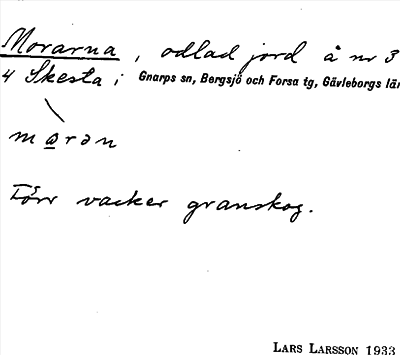 Morarna, odlad jord å nr 3
4 Skesta i Gnarps sn, Bergsjö och Forsa tg, Gävleborgs län
mɷ̠rən
Förr vacker granskog.
LARS LARSSON 1933